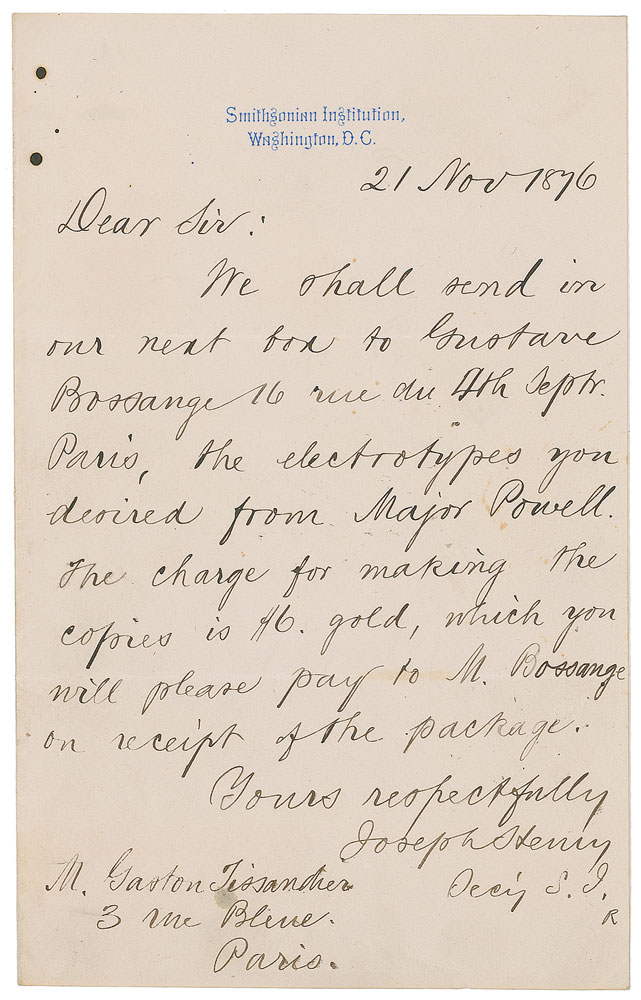 Smithsonian Institution,
Washington, D.C.
21 Nov 1876
Dear Sir:
We shall send in
our next box to Gustave
Bossange 16 rue du 4th Septr.
Paris, the electrotypes you
desired from Major Powell.
The charge for making the
copies is $6. gold, which you
will please pay to M. Bossange
on receipt of the package.
Yours respectfully
Joseph Henry
Secy S. I.
R
M. Gaston Tissandier
3 rue Bleue.
Paris.